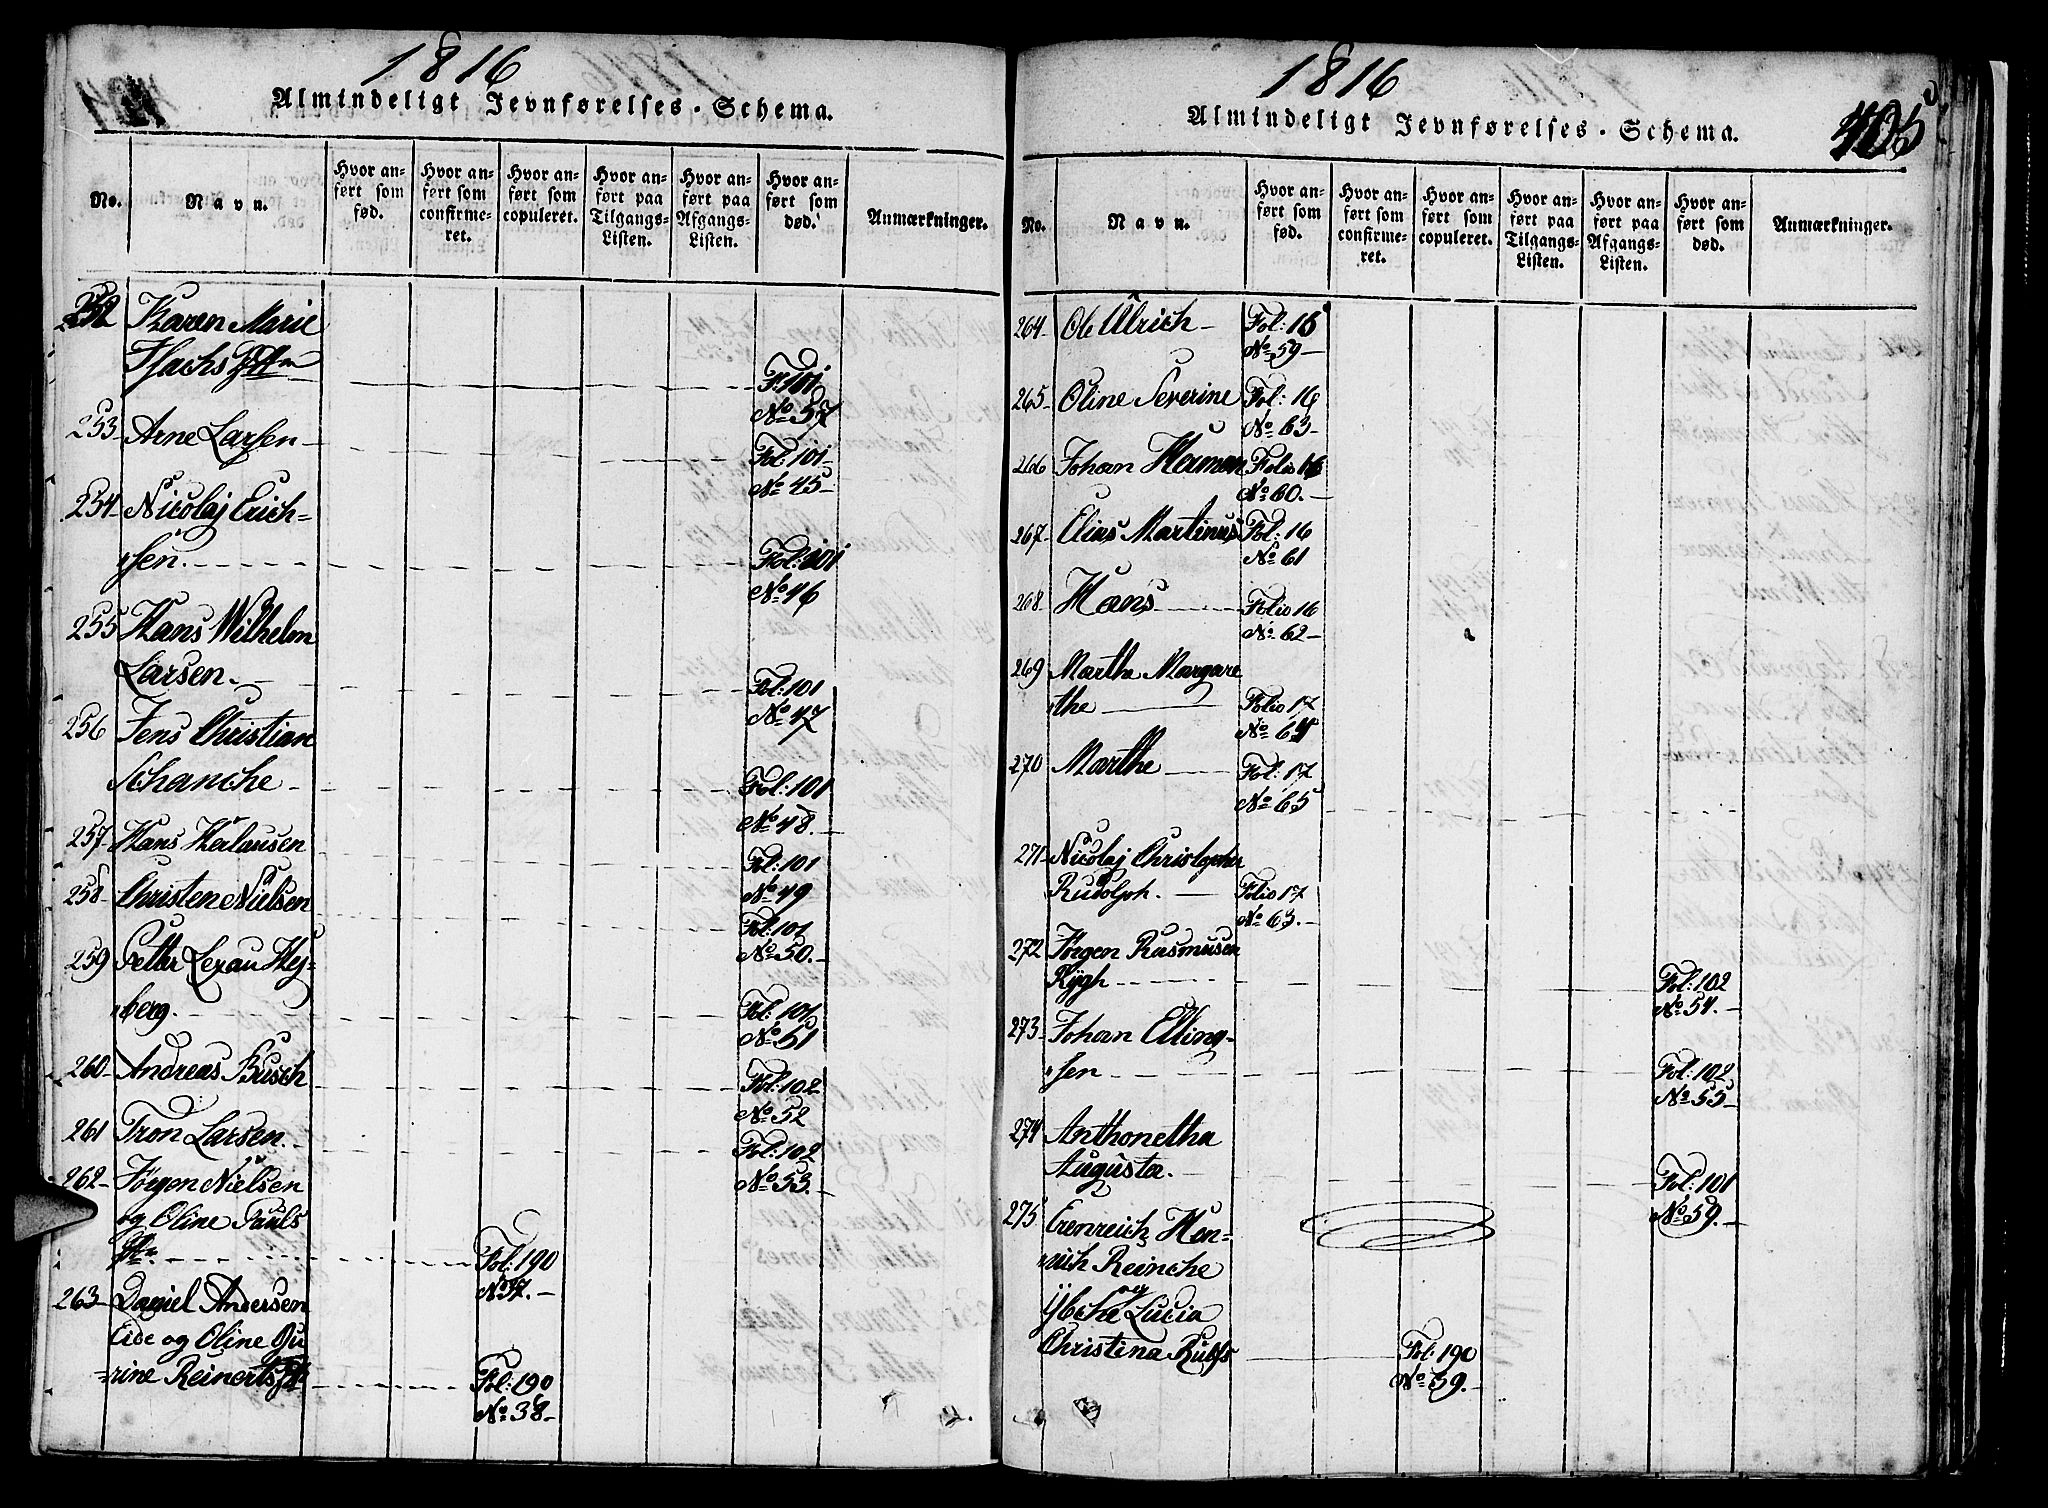 1816
Almindeligt Jevnførelses-Schema.
No.
Navn.
Hvor an-
ført som
fød.
Hvor an-
ført som
confirme-
ret.
Hvor an-
ført som
copuleret.
Hvor an-
ført paa
Tilgangs-
Listen.
Hvor an-
ført paa
Afgangs-
Listen.
Hvor an-
ført som
død.
Anmærkninger.
252 Karen Marie
Isachs
F. 101
No 57
253 Arne Larsen
Fol: 101
No 45
254 Nicolaj Erich=
sen.
Fol: 101
No 46
255 Hans Wilhelm
Larsen.
Fol: 101
No 47
256 Jens Christian
Schanche
Fol: 101
No 48.
257 Hans
Fol: 101
No 49
258 Christen Nielsen
Fol: 101
No 50.
259 Petter Lexau Hej=
berg.
Fol: 101
No 51
260 Andreas Busch
Fol: 102
No 52
261 Tron Larsen.
Fol: 102
No 53.
262 Jørgen Nielsen
og Oline Pauls
Fol: 190
No 37.
263 Daniel Andersen
Eide og Oline Qu
=rine Reinerts
Fol: 190
No 38.
1816
Almindeligt Jevnførelses-Schema.
405
No.
Navn.
Hvor an-
ført som
fød.
Hvor an-
ført som
confirme-
ret.
Hvor an-
ført som
copuleret.
Hvor an-
ført paa
Tilgangs-
Listen.
Hvor an-
ført paa
Afgangs-
Listen.
Hvor an-
ført som
død.
Anmærkninger.
264 Ole Ulrich Fol: 16
No 59
265 Oline Severine Fol: 16
No 63
266 Johan Herman Folio 16
No 60.
267 Elias Martinus Fol: 16
No 61
268 Hans Folio 16
No 62
269 Marthe Margare
the Folio 17
No 64
270 Marthe Fol: 17
No 65
271 Nicolaj Christopher
Rudolph. Folio 17
No 63.
272 Jørgen Rasmusen
Rygh Fol: 102
No 54.
273 Johan Elling=
sen Fol: 102
No 55
274 Anthonetha
Augusta. Fol: 101
No 59.
275 Erenreich Hen=
rich Reinche
og
Ybche Lucia
Christina Rulfs Fol: 190
No 39.